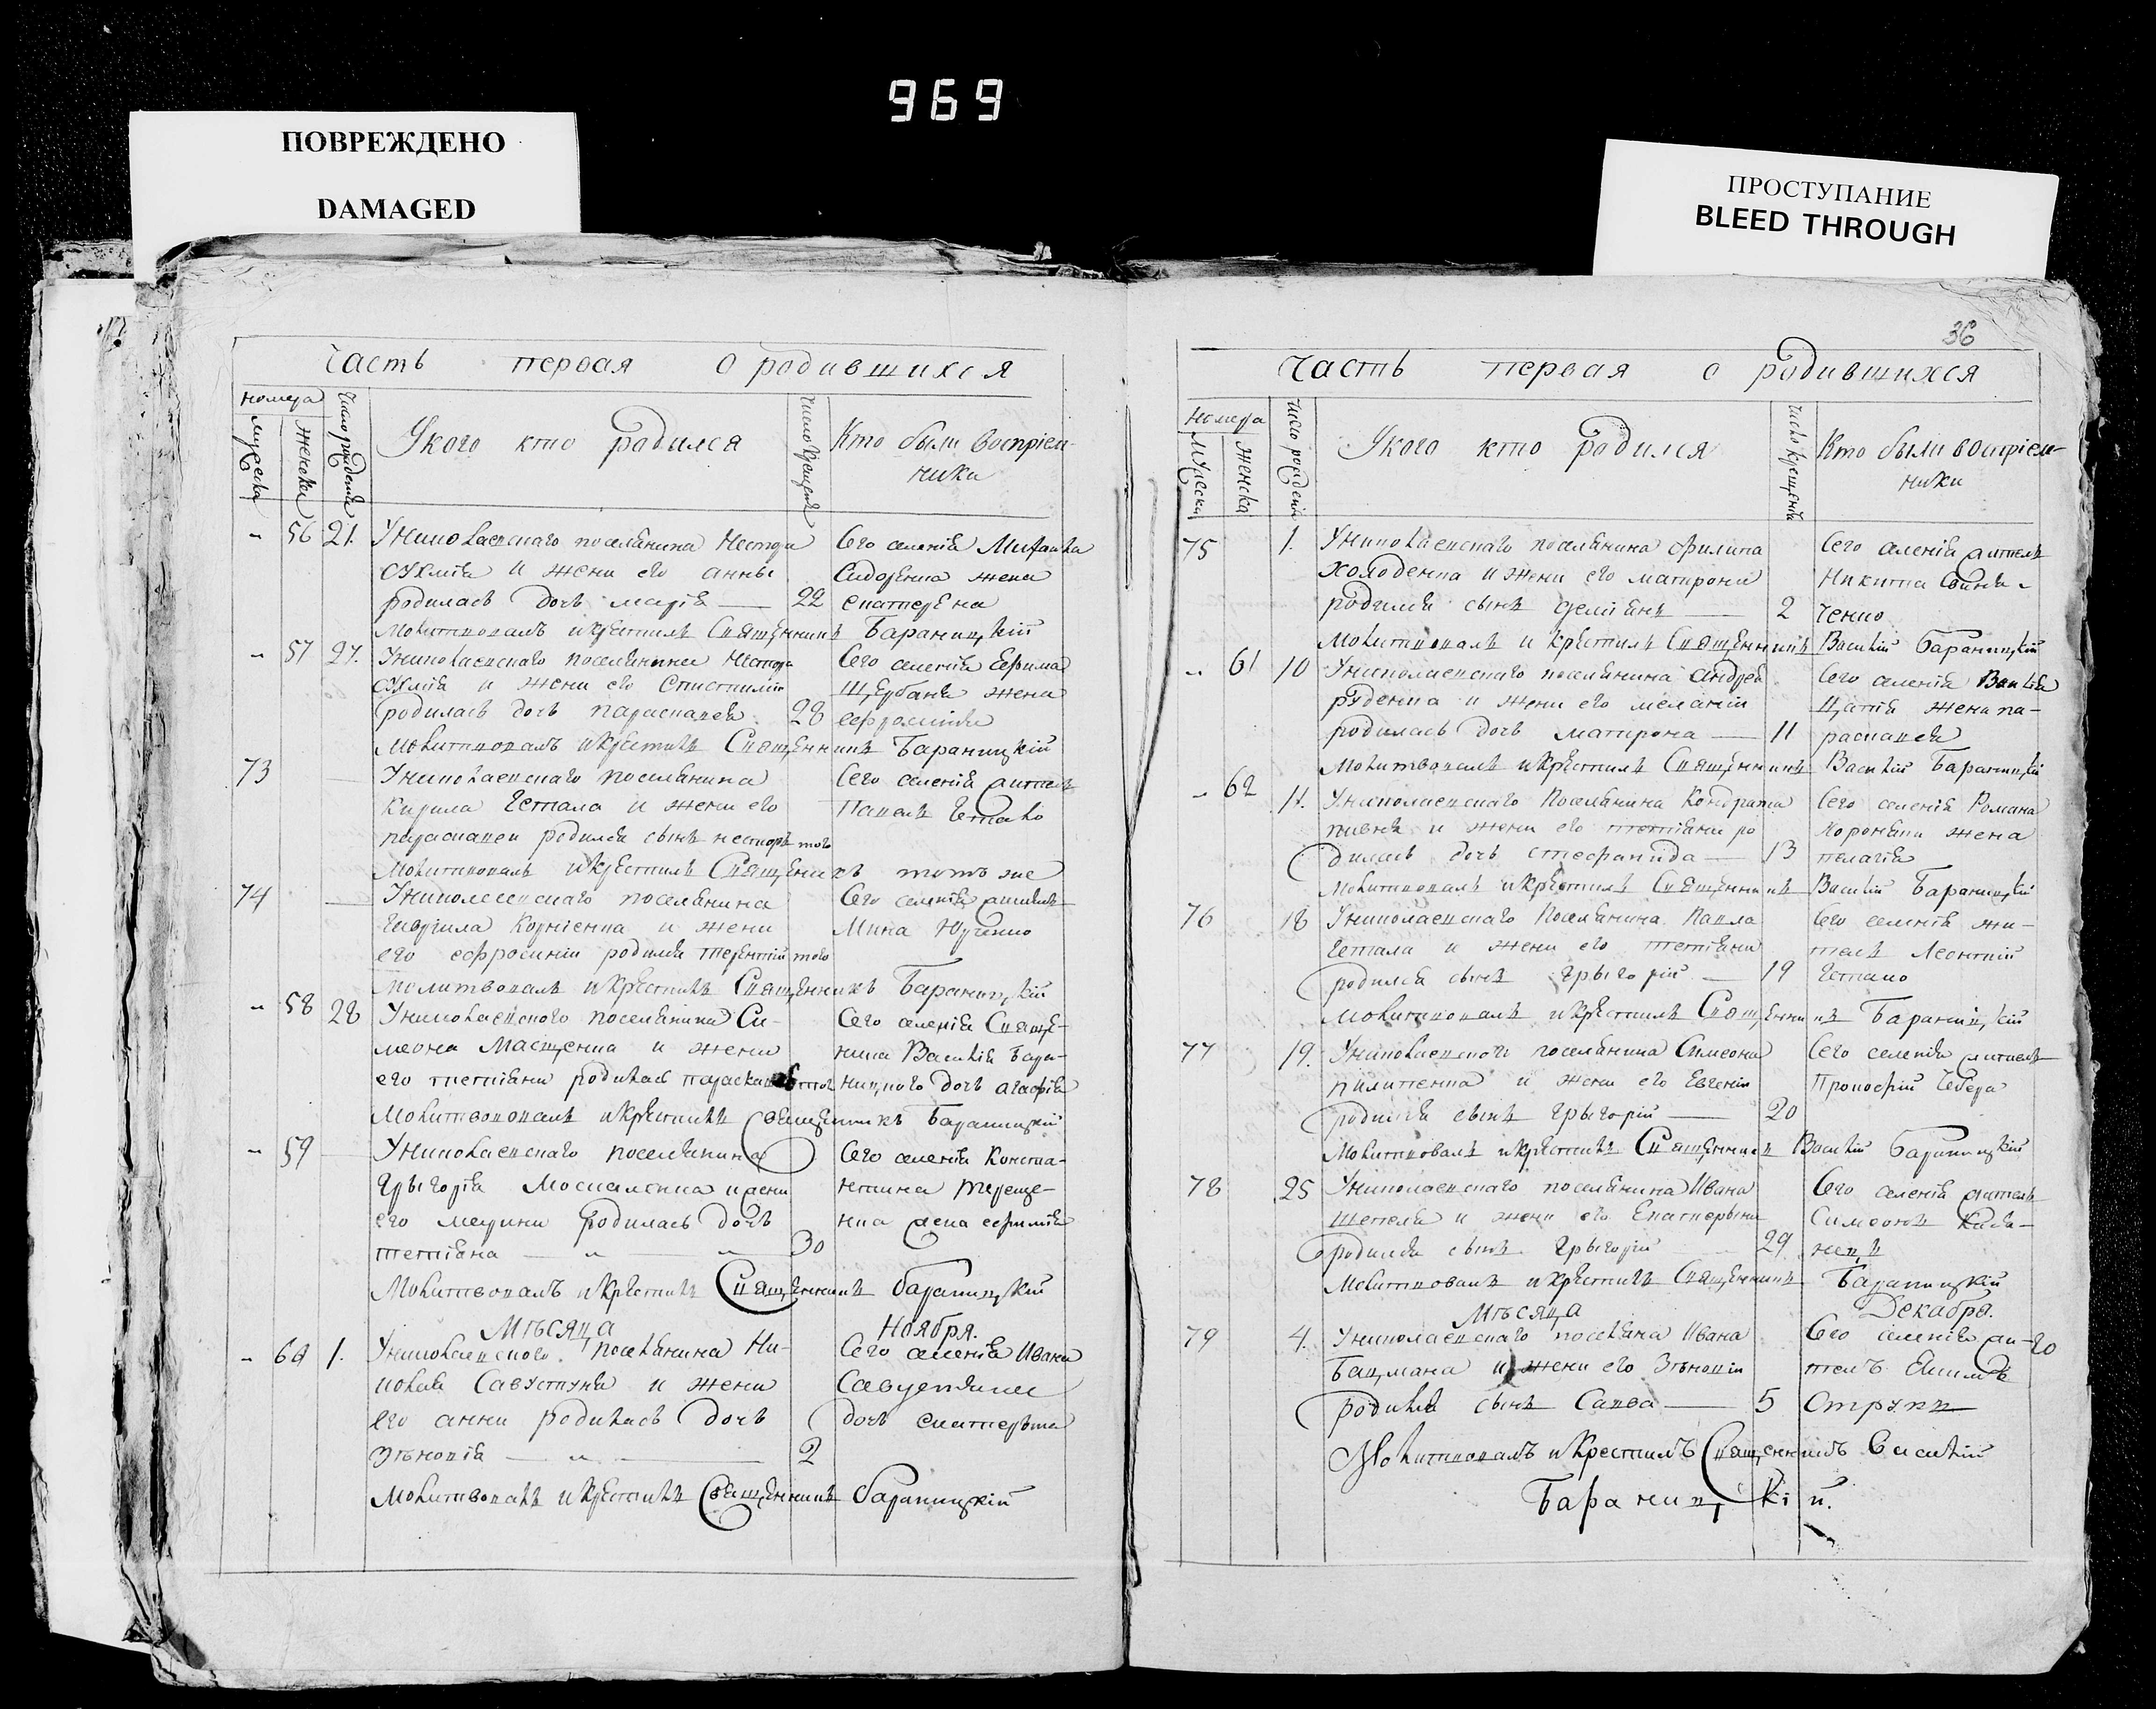 969
ПОВРЕЖДЕНО
DAMAGED
ПРОСТУПАНИЕ
BLEED THROUGH
Часть первая о родившихся
номера
мужеска
женска
число рождения
У кого кто родился
число крещения
Кто были воспріем-
ники
56 21. У николаевскаго поселянина Нестора
и жени его анны
родилась дочь марія — 22
Сего селенія
Сидоренка жена
екатерена
молитвовалъ и крестилъ Священникъ Бараницкій
57 27. У николаевскаго поселянина Нестора
и жени его
родилась дочь параскавея 28
Сего селенія Ефима
Щербаня жена
молитвовалъ и крестилъ Священникъ Бараницкій
73 — У николаевскаго поселянина
Кирила Чепала и жени его
параскавеи родился сынъ несторъ того
Сего селенія житель
Павелъ
молитвовалъ и крестилъ Священикъ тотъ же
74 — У николаевскаго поселянина
Гаврила Корніенка и жени
его ефросиніи родился терентій того
Сего селенія житель
Мина
молитвовалъ и крестилъ Священникъ Бараницкій
58 28 У николаевского поселянина Си-
меона и жени
его тетіяни родилась параскавея
Сего селенія Священ-
ника Василія Бара-
ницкого дочь агафія
Молитвовалъ и крестилъ священникъ Бараницкій
59 — У николаевскаго поселянина
Грыгорія Москаленка и жени
его марини родилась дочь
тетіяна — „ — „ — 30
Сего селенія Конста-
нтина Тереще-
нка жена
Молитвовалъ и крестилъ Священникъ бараницкій
Мѣсяца Ноября.
60 1. У николаевского поселянина Ни-
колая и жени
его анни родилась дочь
Зѣновія — „ — 2
Сего селенія Ивана
дочь екатерына
Молитвовалъ и крестилъ Священникъ бараницкій
36
Часть первая о родившихся
номера
мужеска
женска
число рожденія
У кого кто родился
число крещенія
Кто были воспріем-
ники
75 1. У николаевскаго поселянина Филипа
холоденка и жени его матрони
родился сынъ — 2
Сего селенія житель
Никита
ченко
Молитвовалъ и крестилъ Священникъ Василій Бараницкій
61 10 У николаевскаго поселянина Андрея
руденка и жени его меланіи
родилась дочь матрона — 11
Сего селенія Василія
жена па-
раскавея
Молитвовалъ и крестилъ Священникъ Василій Бараницкій
62 11. У николаевскаго поселянина Кондрата
и жени его тетіяни ро
дилась дочь стефанида — 13
Сего селенія Романа
жена
пелагія
Молитвовалъ и крестилъ Священникъ Василій Бараницкій
76 18 У николаевскаго поселянина Павла
Чепала и жени его тетіяни
родился сынъ Грыгорій — 19
Сего селенія жи-
тель Леонтій
Молитвовалъ и крестилъ Священникъ Бараницкій
77 19. У николаевскаго поселянина Симеона
пилипенка и жени его Евгеніи
родился сынъ Грыгорій — 20
Сего селенія житель
Прокофій
Молитвовалъ и крестилъ Священникъ Василій Бараницкій
78 25 У николаевскаго поселянина Ивана
шепеля и жени его Екатерыни
родился сынъ Грыгорій 29
Сего селенія житель
Симеонъ
Молитвовалъ и крестилъ Священникъ Бараницкій
Мѣсяца Декабря.
79 4. У николаевскаго поселяна Ивана
Бацмана и жени его Зѣновіи
родился сынъ Савва — 5
Сего селенія жи-
тель
Молитвовалъ и крестилъ Священникъ Василій
Бараницкій.